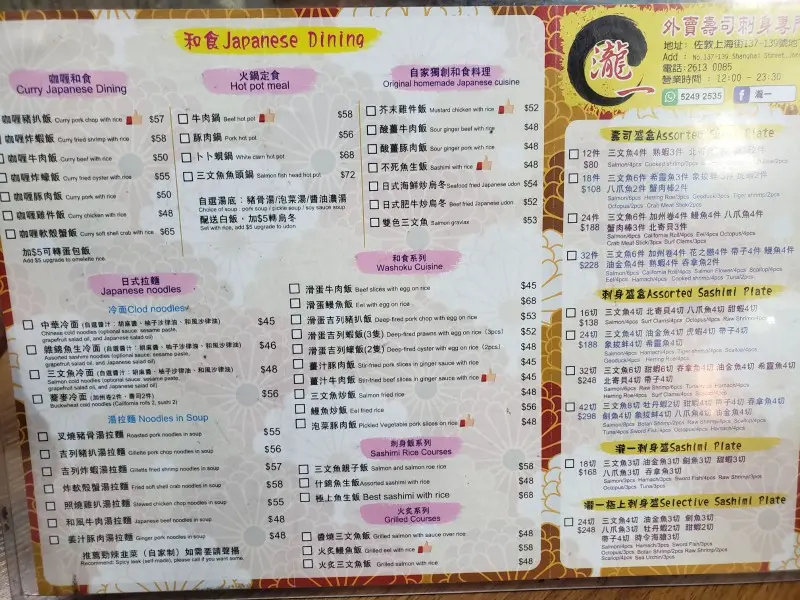 和食Japanese Dining
咖喱和食
Curry Japanese Dining
咖喱豬扒飯 Curry pork chop with rice $57
咖喱炸蝦飯 Curry fried shrimp with rice $58
咖喱牛肉飯 Curry beef with rice $50
咖喱炸蠔飯 Curry fried oyster with rice $55
咖喱豚肉飯 Curry pork with rice $50
咖喱雞件飯 Curry chicken with rice $48
咖喱軟殼蟹飯 Curry soft shell crab with rice $65
加$5可轉蛋包飯
Add $5 upgrade to omelette rice.
火鍋定食
Hot pot meal
牛肉鍋 Beef hot pot $58
豚肉鍋 Pork hot pot $56
卜卜蜆鍋 White clam hot pot $68
三文魚魚頭鍋 Salmon fish head hot pot $72
自選湯底：豬骨湯/泡菜湯/醬油濃湯
Choice of soup : pork soup / pickle soup / soy sauce soup
配送白飯，加$5轉烏冬
Set with rice, add $5 upgrade to udon.
自家獨創和食料理
Original homemade Japanese cuisine
芥末雞件飯 Mustard chicken with rice $52
酸薑牛肉飯 Sour ginger beef with rice $48
酸薑豚肉飯 Sour ginger pork with rice $48
不死魚生飯 Sashimi with rice $48
日式海鮮炒烏冬 Seafood fried Japanese udon $54
日式肥牛炒烏冬 Beef fried Japanese udon $52
雙色三文魚 Salmon gravlax $53
日式拉麵
Japanese noodles
冷面Clod noodles
中華冷面 (自選醬汁：胡麻醬、柚子沙律油、和風沙律油) $45
Chinese cold noodles (optional sauce: sesame paste,
grapefruit salad oil, and Japanese salad oil)
雜錦魚生冷面 (自選醬汁：胡麻醬、柚子沙律油、和風沙律油) $46
Assorted sashimi noodles (optional sauce: sesame paste,
grapefruit salad oil, and Japanese salad oil)
三文魚冷面 (自選醬汁：胡麻醬、柚子沙律油、和風沙律油) $48
Salmon cold noodles (optional sauce: sesame paste,
grapefruit salad oil, and Japanese salad oil)
蕎麥冷面 (加州卷2件、壽司2件) $56
Buckwheat cold noodles (California rolls 2, sushi 2)
湯拉麵 Noodles in Soup
叉燒豬骨湯拉麵 Roasted pork noodles in soup $55
吉列豬扒湯拉麵 Gillette pork chop noodles in soup $56
吉列炸蝦湯拉麵 Gillette fried shrimp noodles in soup $57
炸軟殼蟹湯拉麵 Fried soft shell crab noodles in soup $58
照燒雞扒湯拉麵 Stewed chicken chop noodles in soup $55
和風牛肉湯拉麵 Japanese beef noodles in soup $48
姜汁豚肉湯拉麵 Ginger pork noodles in soup $48
推薦勁辣韭菜（自家制）如需要請聲揚
Recommend: Spicy leek (self-made), please call if you want some.
和食系列
Washoku Cuisine
滑蛋牛肉飯 Beef slices with egg on rice $45
滑蛋鰻魚飯 Eel with egg on rice $68
滑蛋吉列豬扒飯 Deep-fried pork chop with egg on rice $53
滑蛋吉列蝦飯(3隻) Deep-fried prawns with egg on rice (3pcs) $52
滑蛋吉列蠔飯(2隻) Deep-fried oyster with egg on rice (2pcs) $48
薑汁豚肉飯 Stir-fried pork slices in ginger sauce with rice $45
薑汁牛肉飯 Stir-fried beef slices in ginger sauce with rice $45
三文魚炒飯 Salmon fried rice $48
鰻魚炒飯 Eel fried rice $56
泡菜豚肉飯 Pickled Vegetable pork slices on rice $48
刺身飯系列
Sashimi Rice Courses
三文魚親子飯 Salmon and salmon roe rice $58
什錦魚生飯 Assorted sashimi with rice $48
極上魚生飯 Best sashimi with rice $68
火炙系列
Grilled Courses
醬燒三文魚飯 Grilled salmon with sauce over rice $48
火炙鰻魚飯 Grilled eel with rice $58
火炙三文魚飯 Grilled salmon with rice $48
瀧一
外賣壽司刺身專門
地址: 佐敦上海街137-139號地
Add : No.137-139 Shanghai Street, Jor
電話:2613 0085
營業時間 : 12:00 - 23:30
5249 2535 瀧一
壽司盛盒Assorted Sushi Plate
12件 三文魚4件 熟蝦3件
$80
18件 三文魚6件 希靈魚3件
$108 八爪魚2件 蟹肉棒2件
24件 三文魚6件 加州卷4件 鰻魚4件 八爪魚4件
$188 蟹肉棒3件 北寄貝3件
32件 三文魚6件 加州卷4件 花之戀4件 帶子4件 鰻魚4件
$228 油金魚4件 熟蝦4件 吞拿魚2件
刺身盛盒Assorted Sashimi Plate
16切 三文魚4切 北寄貝4切 八爪魚4切 甜蝦4切
$138
24切 三文魚4切 油金魚4切 虎蝦4切 帶子4切
$188 象拔蚌4切 希靈魚4切
32切 三文魚6切 甜蝦6切 吞拿魚4切 油金魚4切 希靈魚4切
$248 北寄貝4切 帶子4切
42切 三文魚8切 牡丹蝦2切 甜蝦4切 帶子4切 吞拿魚4切
$298 劍魚4切 象拔蚌4切 八爪魚4切 油魚4切
瀧一刺身盛Sashimi Plate
18切 三文魚3切 油金魚3切 劍魚3切 甜蝦3切
$168 八爪魚3切 吞拿魚3切
瀧一極上刺身盛Selective Sashimi Plate
24切 三文魚4切 油金魚3切 劍魚3切
$248 八爪魚3切 牡丹蝦2切 甜蝦2切
帶子4切 時令海膽3切